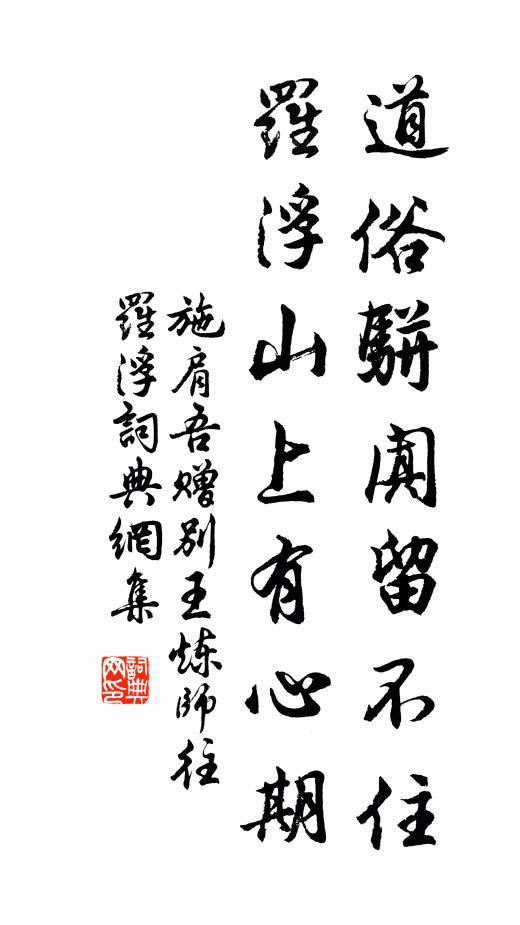 道俗駢闐留不住
羅浮山上有心期
施肩吾贈別王煉師往
羅浮詞典網集
詞典網印